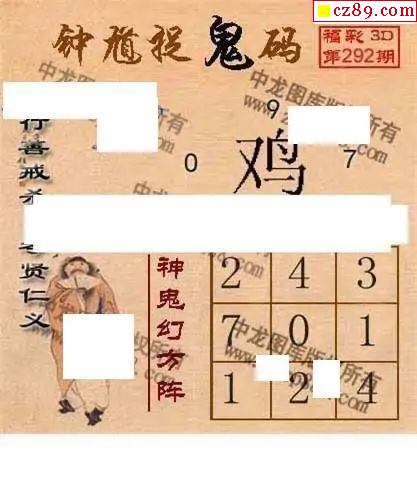 cz89.com
钟馗捉鬼码
福彩3D
第292期
中龙图库版权所有
9
0 鸡 7
行善戒杀
贤仁义
神鬼幻方阵
2 4 3
7 0 1
1 2 4